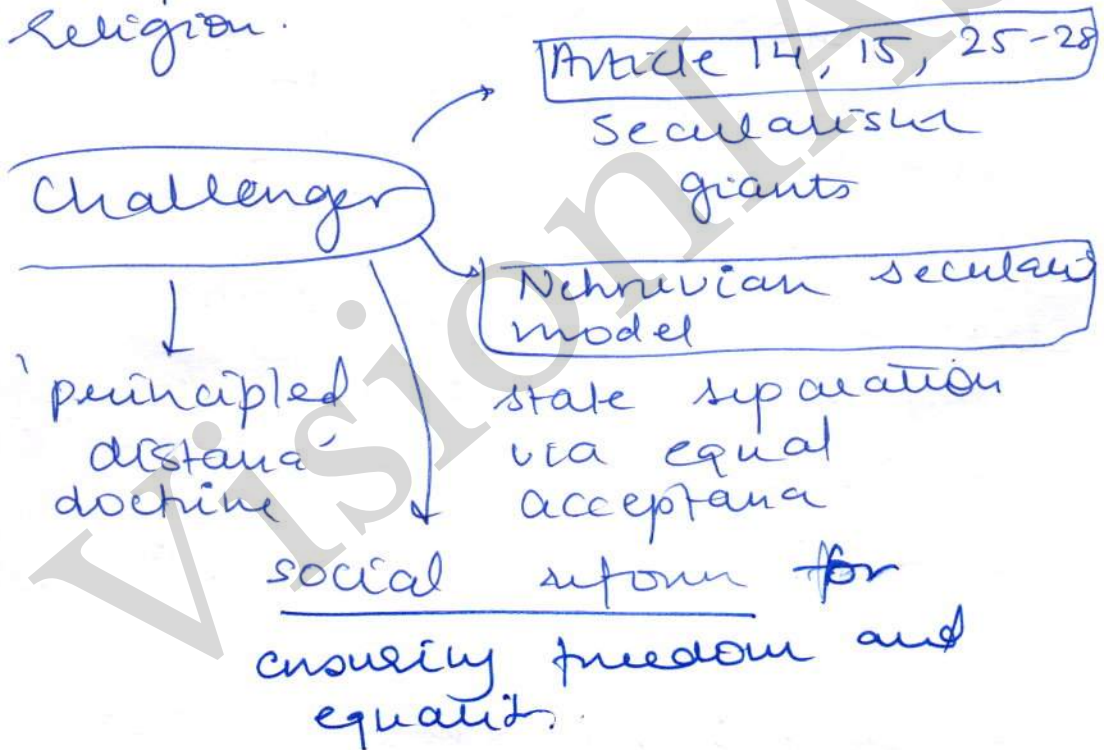 Religion.
Article 14, 15, 25-28
Secularism
giants
Challenger
Nehruvian secular
model
'principled
distance'
doctrine
state separation
via equal
acceptance
social reform for
ensuring freedom and
equality.
VisionIA